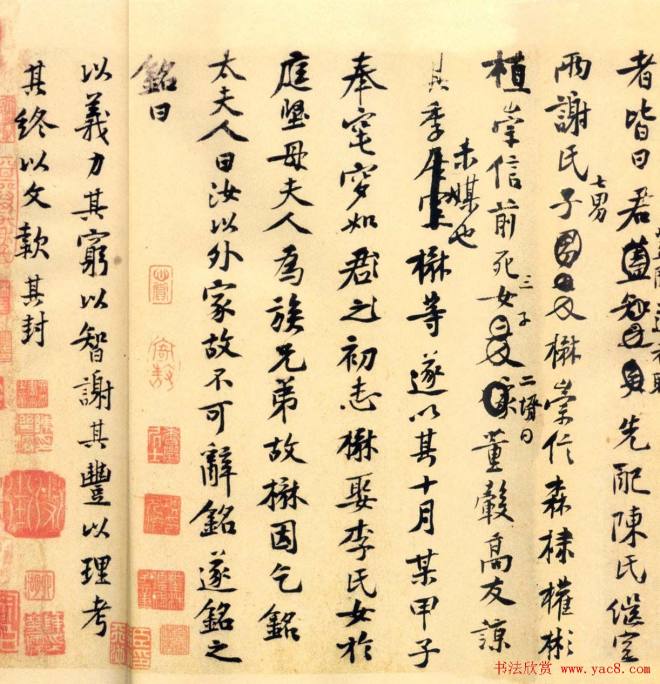 者皆曰君先配陳氏繼室
兩謝氏子七男曰楙崇信森棣權彬
植崇信前死女三子二壻曰董轂高友諒
其季未媒也楙等遂以其十月某甲子
奉窀穸如君之初志楙娶李氏女於
庭堅母夫人為族兄弟故楙因乞銘
太夫人曰汝以外家故不可辭銘遂銘之
銘曰
以義力其窮以智謝其豐以理考
其終以文款其封
书法欣赏 www.yac8.com